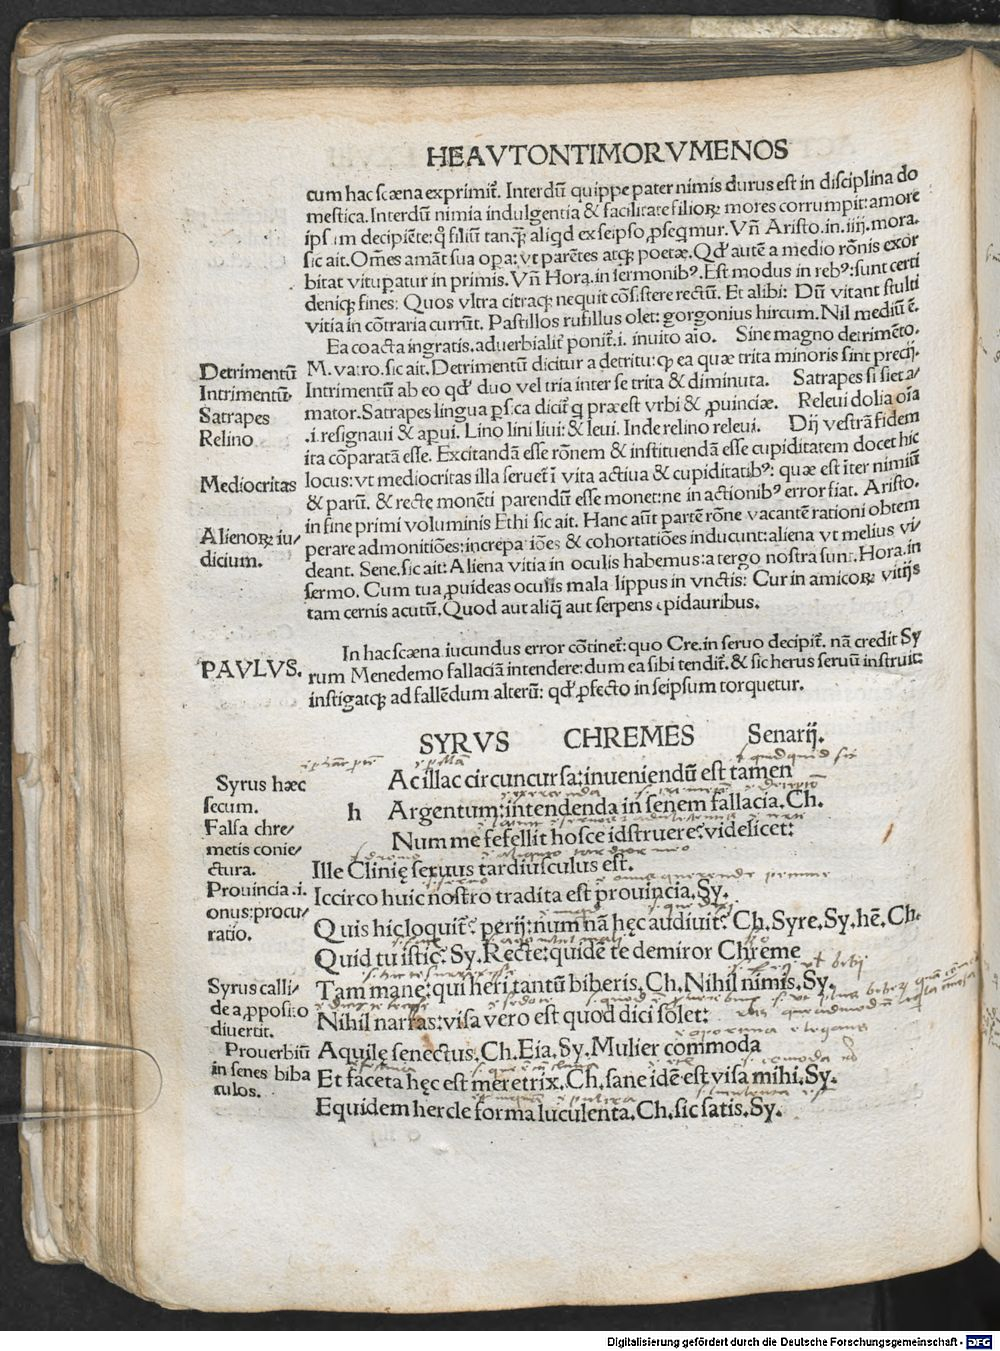 HEAVTONTIMORVMENOS
cum hac scæna exprimit̃. Interdũ quippe pater nimis durus est in disciplina do
mestica. Interdũ nimia indulgentia & facilitate filioꝝ mores corrumpit: amore
ipsum decipiẽte: filiũ tanꝗ̃ aliqd ex seipso ꝓseqmur. Vñ Aristo. in. iiij. mora.
sic ait. Om̃es amãt sua opa: vt parẽtes atqꝫ poetæ. Qd' autẽ a medio rõnis exor
bitat vitupatur in primis. Vñ Hora. in sermonibꝰ. Est modus in rebꝰ: sunt certi
deniqꝫ fines: Quos vltra citraqꝫ nequit cõsistere rectũ. Et alibi: Dũ vitant stulti
vitia in cõtraria currũt. Pastillos rufillus olet: gorgonius hircum. Nil mediũ ẽ.
Ea coacta ingratis. aduerbialit̃ ponit̃. i. inuito aĩo. Sine magno detrimẽto.
Detrimentũ M. varro. sic ait. Detrimentũ dicitur a detritu: ꝙ ea quæ trita minoris sint precij.
Intrimentũ. Intrimentũ ab eo qd' duo vel tria inter se trita & diminuta. Satrapes si siet a/
Satrapes mator. Satrapes lingua psica dicit̃ q præest vrbi & ꝓuinciæ. Releui dolia oĩa
Relino .i. resignaui & apui. Lino lini liui: & leui. Inde relino releui. Dij vestrã fidem
ita cõparatã esse. Excitandã esse rõnem & instituendã esse cupiditatem docet hic
Mediocritas locus: vt mediocritas illa seruet̃ ĩ vita actiua & cupiditatibꝰ: quæ est ĩter nimiũ
& parũ. & recte monẽti parendũ esse monet: ne in actionibꝰ error fiat. Aristo.
in fine primi voluminis Ethi sic ait. Hanc aũt partẽ rõne vacantẽ rationi obtem
Alienoꝝ iu/ perare admonitiões: increpatiões & cohortatiões inducunt: aliena vt melius vi/
dicium. deant. Sene. sic ait: Aliena vitia in oculis habemus: a tergo nostra sunt. Hora. in
sermo. Cum tua ꝓuideas oculis mala lippus in vnctis: Cur in amicoꝝ vitijs
tam cernis acutũ. Quod aut aliq̃ aut serpens epidauribus.
In hac scæna iucundus error cõtinet̃: quo Cre. in seruo decipit̃. nã credit Sy
PAVLVS. rum Menedemo fallaciã intendere: dum ea sibi tendit̃. & sic herus seruũ instruit:
instigatqꝫ ad fallẽdum alterũ: qd' ꝓfecto in seipsum torquetur.
SYRVS CHREMES Senarij.
Syrus hæc secum. Ac illac circuncursa: inueniendũ est tamen
h Argentum: intendenda in senem fallacia. Ch.
Falsa chre/ metis conie/ ctura. Num me fefellit hosce id struere: videlicet:
Ille Clinię seruus tardiusculus est.
Prouincia .i. onus: procu/ ratio. Iccirco huic nostro tradita est prouincia. Sy.
Quis hic loquit̃? perij: num nã hęc audiuit? Ch. Syre. Sy. hẽ. Ch.
Quid tu istic? Sy. Recte: quidẽ te demiror Chreme
Syrus calli/ de a ꝓposito diuertit. Tam mane: qui heri tantũ biberis. Ch. Nihil nimis. Sy.
Nihil narras: visa vero est quod dici solet:
Prouerbiũ in senes biba culos. Aquilę senectus. Ch. Eia. Sy. Mulier commoda
Et faceta hęc est meretrix. Ch. sane idẽ est visa mihi. Sy.
Equidem hercle forma luculenta. Ch. sic satis. Sy.
Digitalisierung gefördert durch die Deutsche Forschungsgemeinschaft - DFG